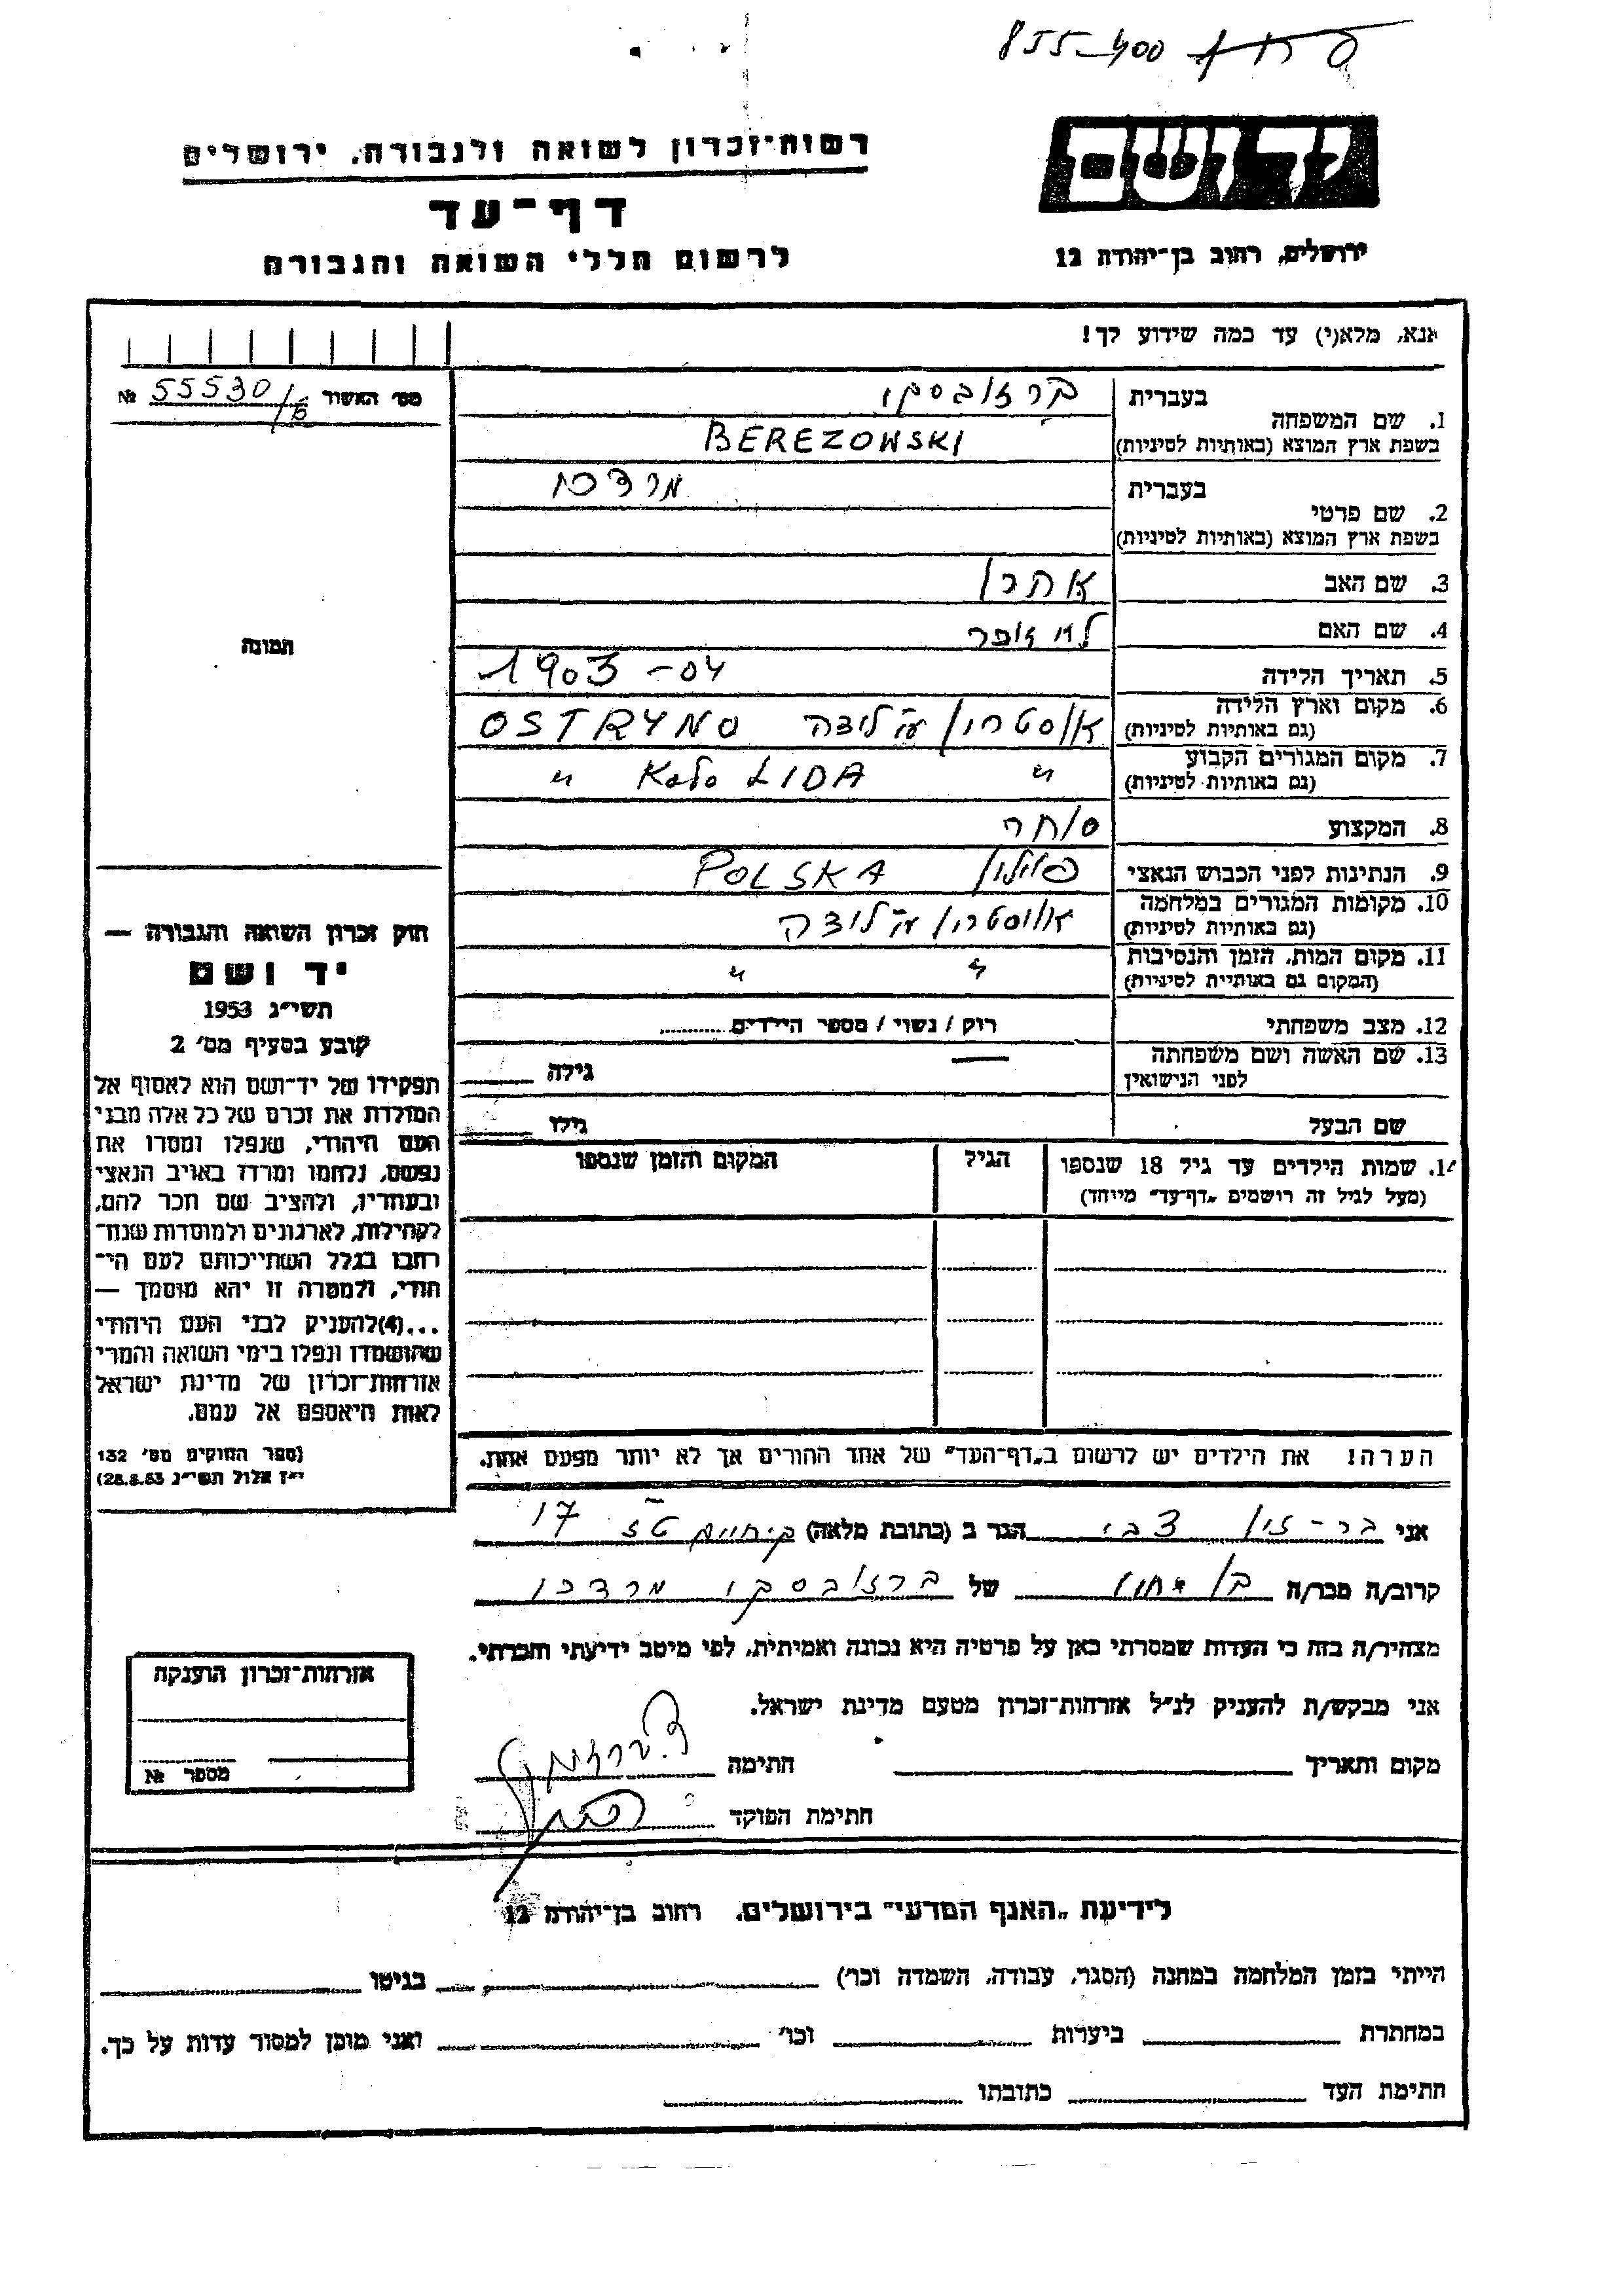 855-400
יד ושם
ירושלים, רחוב בן־יהודה 12
רשות־זכרון לשואה ולגבורה, ירושלים
דף־עד
לרשום חללי השואה והגבורה
אנא, מלא(י) עד כמה שידוע לך!
מס׳ האשור 55530/ №
1. שם המשפחה בעברית ברזובסקי
בשפת ארץ המוצא (באותיות לטיניות) BEREZOWSKI
2. שם פרטי בעברית מרדכי
בשפת ארץ המוצא (באותיות לטיניות)
3. שם האב אהרן
4. שם האם
5. תאריך הלידה 1903-04
6. מקום וארץ הלידה (גם באותיות לטיניות) אוסטרין ע״י לידה OSTRYNO
7. מקום המגורים הקבוע (גם באותיות לטיניות) " Koło LIDA "
8. המקצוע סוחר
9. הנתינות לפני הכבוש הנאצי פולין POLSKA
10. מקומות המגורים במלחמה (גם באותיות לטיניות) אוסטרין ע״י לידה
11. מקום המות, הזמן והנסיבות (המקום גם באותיות לטיניות) " "
12. מצב משפחתי רוק / נשוי / מספר הילדים
13. שם האשה ושם משפחתה לפני הנישואין גילה
שם הבעל גילו
14. שמות הילדים עד גיל 18 שנספו הגיל המקום והזמן שנספו
(מעל לגיל זה רושמים „דף־עד״ מיוחד)
הערה! את הילדים יש לרשום ב„דף־העד״ של אחד ההורים אך לא יותר מפעם אחת.
תמונה
חוק זכרון השואה והגבורה —
יד ושם
תשי״ג 1953
קובע בסעיף מס׳ 2
תפקידו של יד־ושם הוא לאסוף אל
המולדת את זכרם של כל אלה מבני
העם היהודי, שנפלו ומסרו את
נפשם, נלחמו ומרדו באויב הנאצי
ובעוזריו, ולהציב שם וזכר להם,
לקהילות, לארגונים ולמוסדות שנח־
רבו בגלל השתייכותם לעם הי־
הודי, ולמטרה זו יהא מוסמך —
...(4)להעניק לבני העם היהודי
שהושמדו ונפלו בימי השואה והמרי
אזרחות־זכרון של מדינת ישראל
לאות היאספם אל עמם.
(ספר החוקים מס׳ 132
י״ז אלול תשי״ג 28.8.53)
אני בר-זיו צבי הגר ב (כתובת מלאה) ק. חיים 17
קרוב/ה מכר/ה בן אחיו של ברזובסקי מרדכי
מצהיר/ה בזה כי העדות שמסרתי כאן על פרטיה היא נכונה ואמיתית, לפי מיטב ידיעתי והכרתי.
אני מבקש/ת להעניק לנ״ל אזרחות־זכרון מטעם מדינת ישראל.
מקום ותאריך חתימה
חתימת הפוקד
אזרחות־זכרון הוענקה
מספר №
לידיעת „האגף המדעי״ בירושלים, רחוב בן־יהודה 12
הייתי בזמן המלחמה במחנה (הסגר, עבודה, השמדה וכו׳) בגיטו
במחתרת ביערות וכו׳ ואני מוכן למסור עדות על כך.
חתימת העד כתובתו